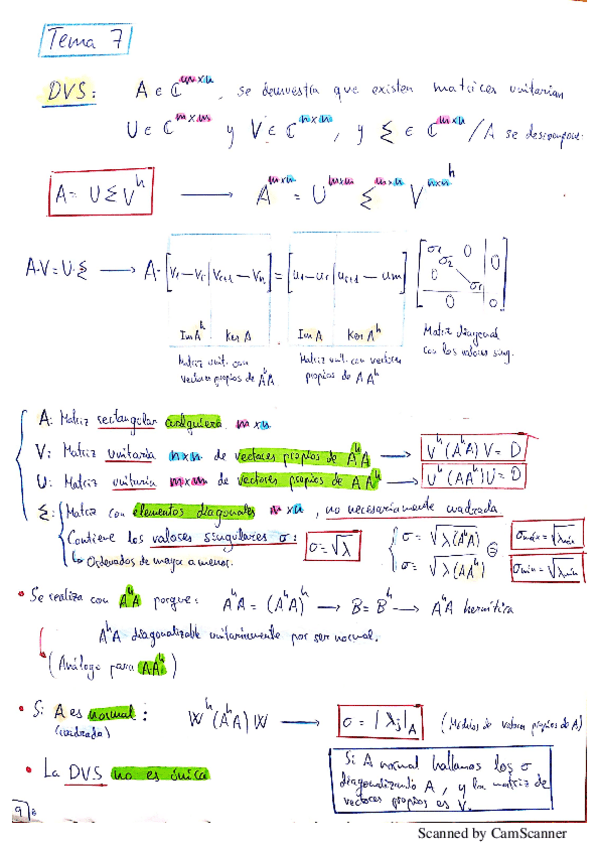 Tema 7
DVS: A ∈ ℂ^{m×n}, se demuestra que existen matrices unitarias
U ∈ ℂ^{m×m} y V ∈ ℂ^{n×n}, y Σ ∈ ℂ^{m×n} / A se descompone:
A = U Σ V^h ⟶ A^{m×n} = U^{m×m} Σ^{m×n} V^{n×n h}
A·V = U·Σ ⟶ A · [v₁ — vᵢ | vᵢ₊₁ — vₙ] = [u₁ — uᵢ | uᵢ₊₁ — um] [σ₁ σ₂ 0 | 0
0 σᵢ
0 | 0]
Im A^h Ker A Im A Ker A^h
Matriz unit. con vectores propios de A^hA
Matriz unit. con vectores propios de A A^h
Matriz diagonal con los valores sing.
A: Matriz rectangular cualquiera m×n
V: Matriz unitaria n×n de vectores propios de A^hA ⟶ V^h (A^hA) V = D
U: Matriz unitaria m×m de vectores propios de A A^h ⟶ U^h (AA^h) U = D
Σ: Matriz con elementos diagonales m×n, no necesariamente cuadrada
Contiene los valores singulares σ: σ = √λ
σ = √λ(A^hA)
σ = √λ(AA^h)
σmáx = √λmáx
σmin = √λmin
↳ Ordenados de mayor a menor.
• Se realiza con A^hA porque: A^hA = (A^hA)^h ⟶ B = B^h ⟶ A^hA hermítica
A^hA diagonalizable unitariamente por ser normal.
(Análogo para AA^h)
• Si A es normal: W^h (A^hA) W ⟶ σ = |λj|_A (Módulos de valores propios de A)
(cuadrada)
• La DVS no es única
Si A normal hallamos los σ
diagonalizando A, y la matriz de
vectores propios es V.
9
Scanned by CamScanner